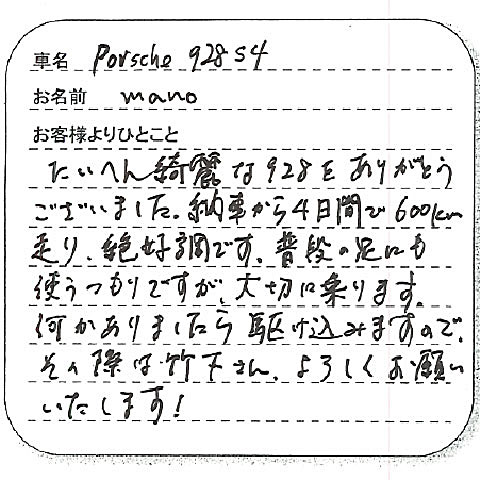 車名 Porsche 928 S4
お名前 mano
お客様よりひとこと
たいへん綺麗な928をありがとう
ございました。納車から4日間で600km
走り、絶好調です。普段の足にも
使うつもりですが、大切に乗ります。
何かありましたら駆け込みますので、
その際は竹下さん、よろしくお願い
いたします!